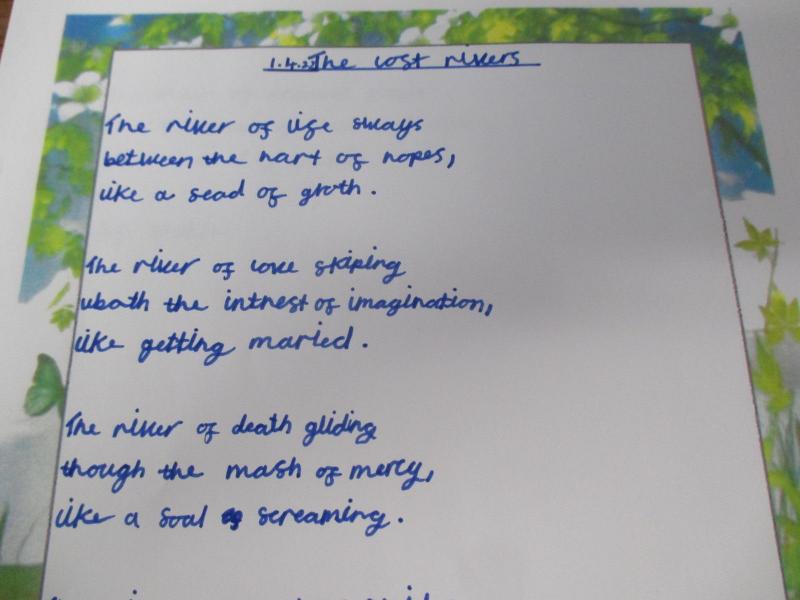 The lost rivers
The river of life sways
between the hart of hopes,
like a sead of groth.
The river of love skiping
the intrest of imagination,
like getting maried.
The river of death gliding
though the mash of mercy,
like a soal screaming.